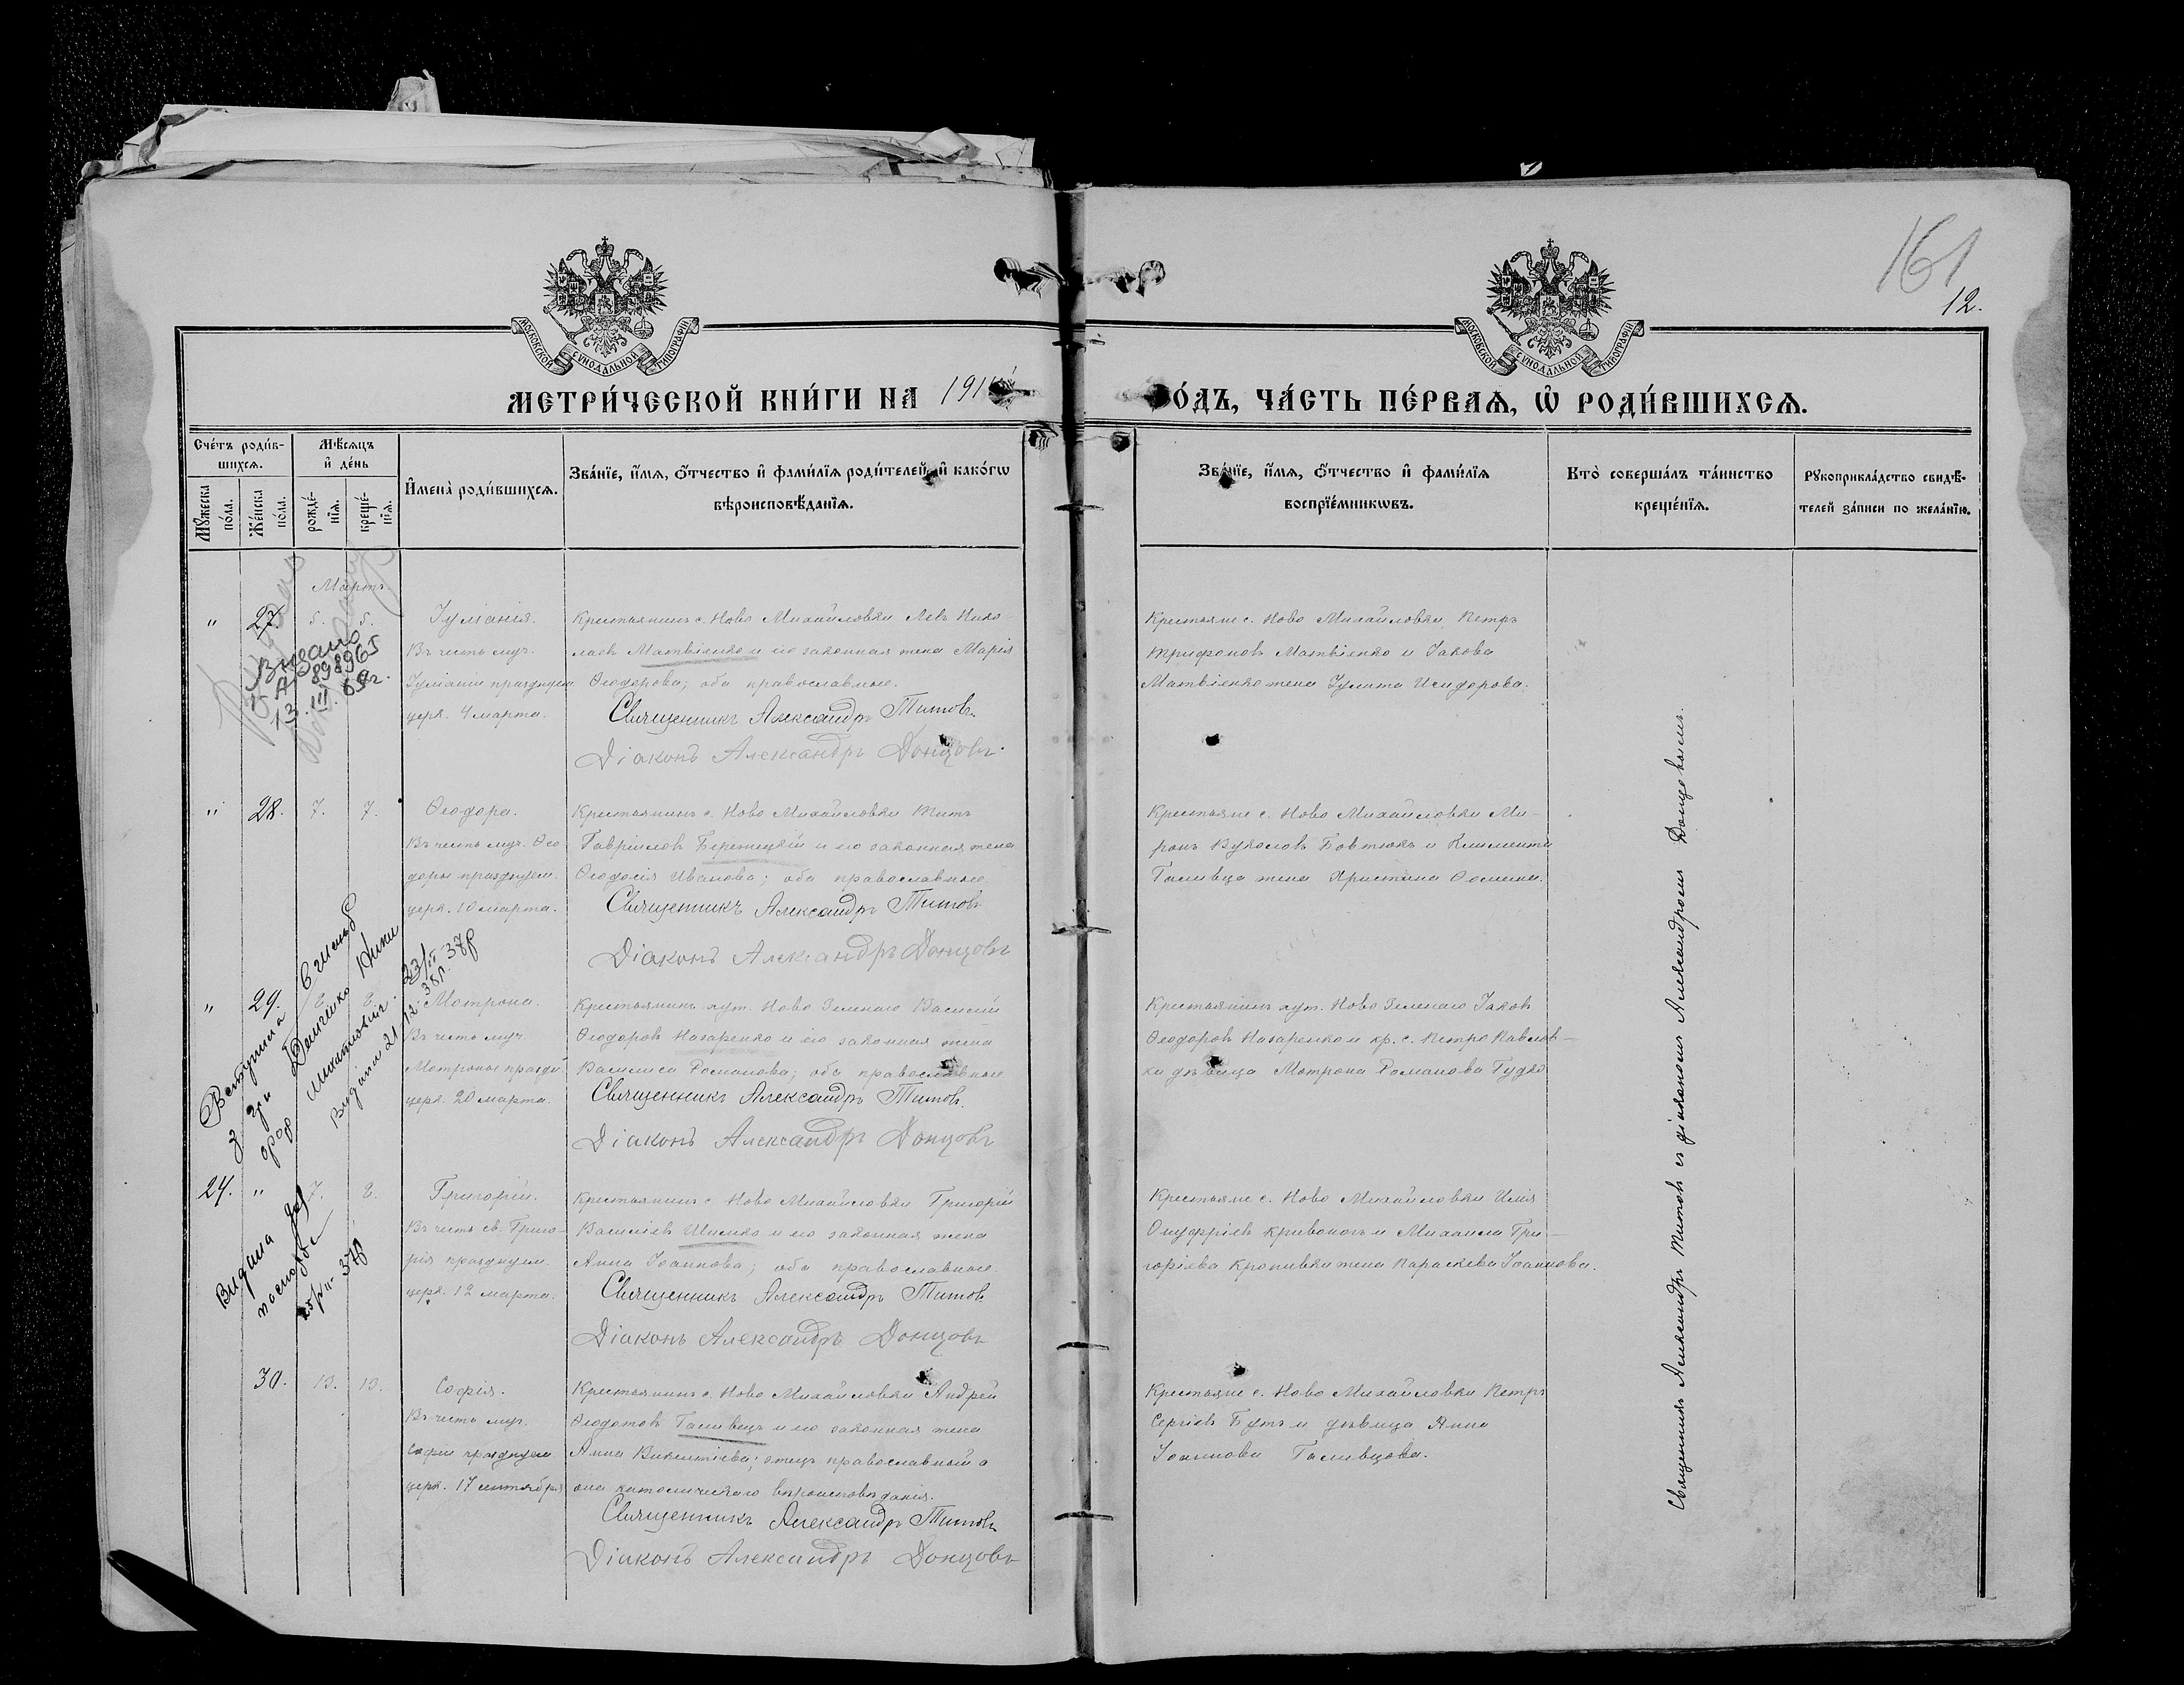 161
12.
МОСКОВСКОЙ СѴНОДАЛЬНОЙ ТИПОГРАФІИ
МОСКОВСКОЙ СѴНОДАЛЬНОЙ ТИПОГРАФІИ
МЕТРИ́ЧЕСКОЙ КНИ́ГИ НА 191
О́ДЪ, ЧА́СТЬ ПЕ́РВАѦ, Ѡ҆ РОДИ́ВШИХСѦ.
Сче́тъ роди́в-
шихсѧ.
Мꙋ́жеска по́ла.
Же́нска по́ла.
Мѣ́сѧцъ и҆ де́нь
рожде́-нїѧ.
креще́-нїѧ.
И҆мена̀ роди́вшихсѧ.
Зва́нїе, и҆́мѧ, ѻ҆́тчество и҆ фами́лїѧ роди́телей, и҆ како́гѡ
вѣроисповѣ́данїѧ.
Зва́нїе, и҆́мѧ, ѻ҆́тчество и҆ фами́лїѧ
воспрїе́мникѡвъ.
Кто̀ соверша́лъ та́инство
креще́нїѧ.
Рꙋкоприкла́дство свидѣ́-
телей за́писи по жела́нїю.
Мартъ
" 27. 5. 5. Іуліанія.
Въ честь муч.
Іуліаніи празднуем.
церк. 4 марта.
Крестьянинъ с. Ново Михайловки Левъ Нико-
лаевъ Матвіенко и его законная жена Марія
Ѳеодорова; оба православные.
Священникъ Александръ Титовъ.
Діаконъ Александръ Донцовъ.
Крестьяне с. Ново Михайловки Петръ
Трифоновъ Матвіенко и Іакова
Матвіенко жена Іулита Исидорова.
Видано
898965
13. III. 69г.
" 28. 7. 7. Ѳеодора.
Въ честь муч. Ѳео-
доры празднуем.
церк. 10 марта.
Крестьянинъ с. Ново Михайловки Титъ
Гавріиловъ Бережецкій и его законная жена
Ѳеодосія Иванова; оба православные.
Священникъ Александръ Титовъ
Діаконъ Александръ Донцовъ
Крестьяне с. Ново Михайловки Ми-
ронъ Вуколовъ Бовтюкъ и Климента
Галивца жена Христина
" 29. 8. 8. Мотрона.
Въ честь муч.
Мотроны праздн.
церк. 20 марта.
Крестьянинъ хут. Ново Зеленаго Василій
Ѳеодоровъ Назаренко и его законная жена
Василиса Романова; оба православные
Священникъ Александръ Титовъ.
Діаконъ Александръ Донцовъ
Крестьянинъ хут. Ново Зеленаго Іаковъ
Ѳеодоровъ Назаренко и кр. с. Петро Павлов-
ки дѣвица Мотрона Романова Гудко
Вступила в
з гр
Видана 21/12 38р.
23/II 37р
24. " 7. 8. Григорій.
Въ честь св. Григо-
рія празднуем.
церк. 12 марта.
Крестьянинъ с. Ново Михайловки Григорій
Василіевъ Шило и его законная жена
Анна Іоаннова; оба православные.
Священникъ Александръ Титовъ
Діаконъ Александръ Донцовъ
Крестьяне с. Ново Михайловки Илія
Онуфріевъ Кривоносъ и Михаила Гри-
горіева Кропивки жена Параскева Іоаннова.
Видана
37р
30. 13. 13. Софія.
Въ честь муч.
Софіи празднуем
церк. 17 сентября
Крестьянинъ с. Ново Михайловки Андрей
Ѳеодотовъ Галивецъ и его законная жена
Анна Викентіева; отецъ православный а
она католическаго вѣроисповѣданія.
Священникъ Александръ Титовъ
Діаконъ Александръ Донцовъ
Крестьяне с. Ново Михайловки Петръ
Сергіевъ Бутъ и дѣвица Анна
Іоаннова Галивцова.
Священникъ Александръ Титовъ съ діакономъ Александромъ Донцовымъ.